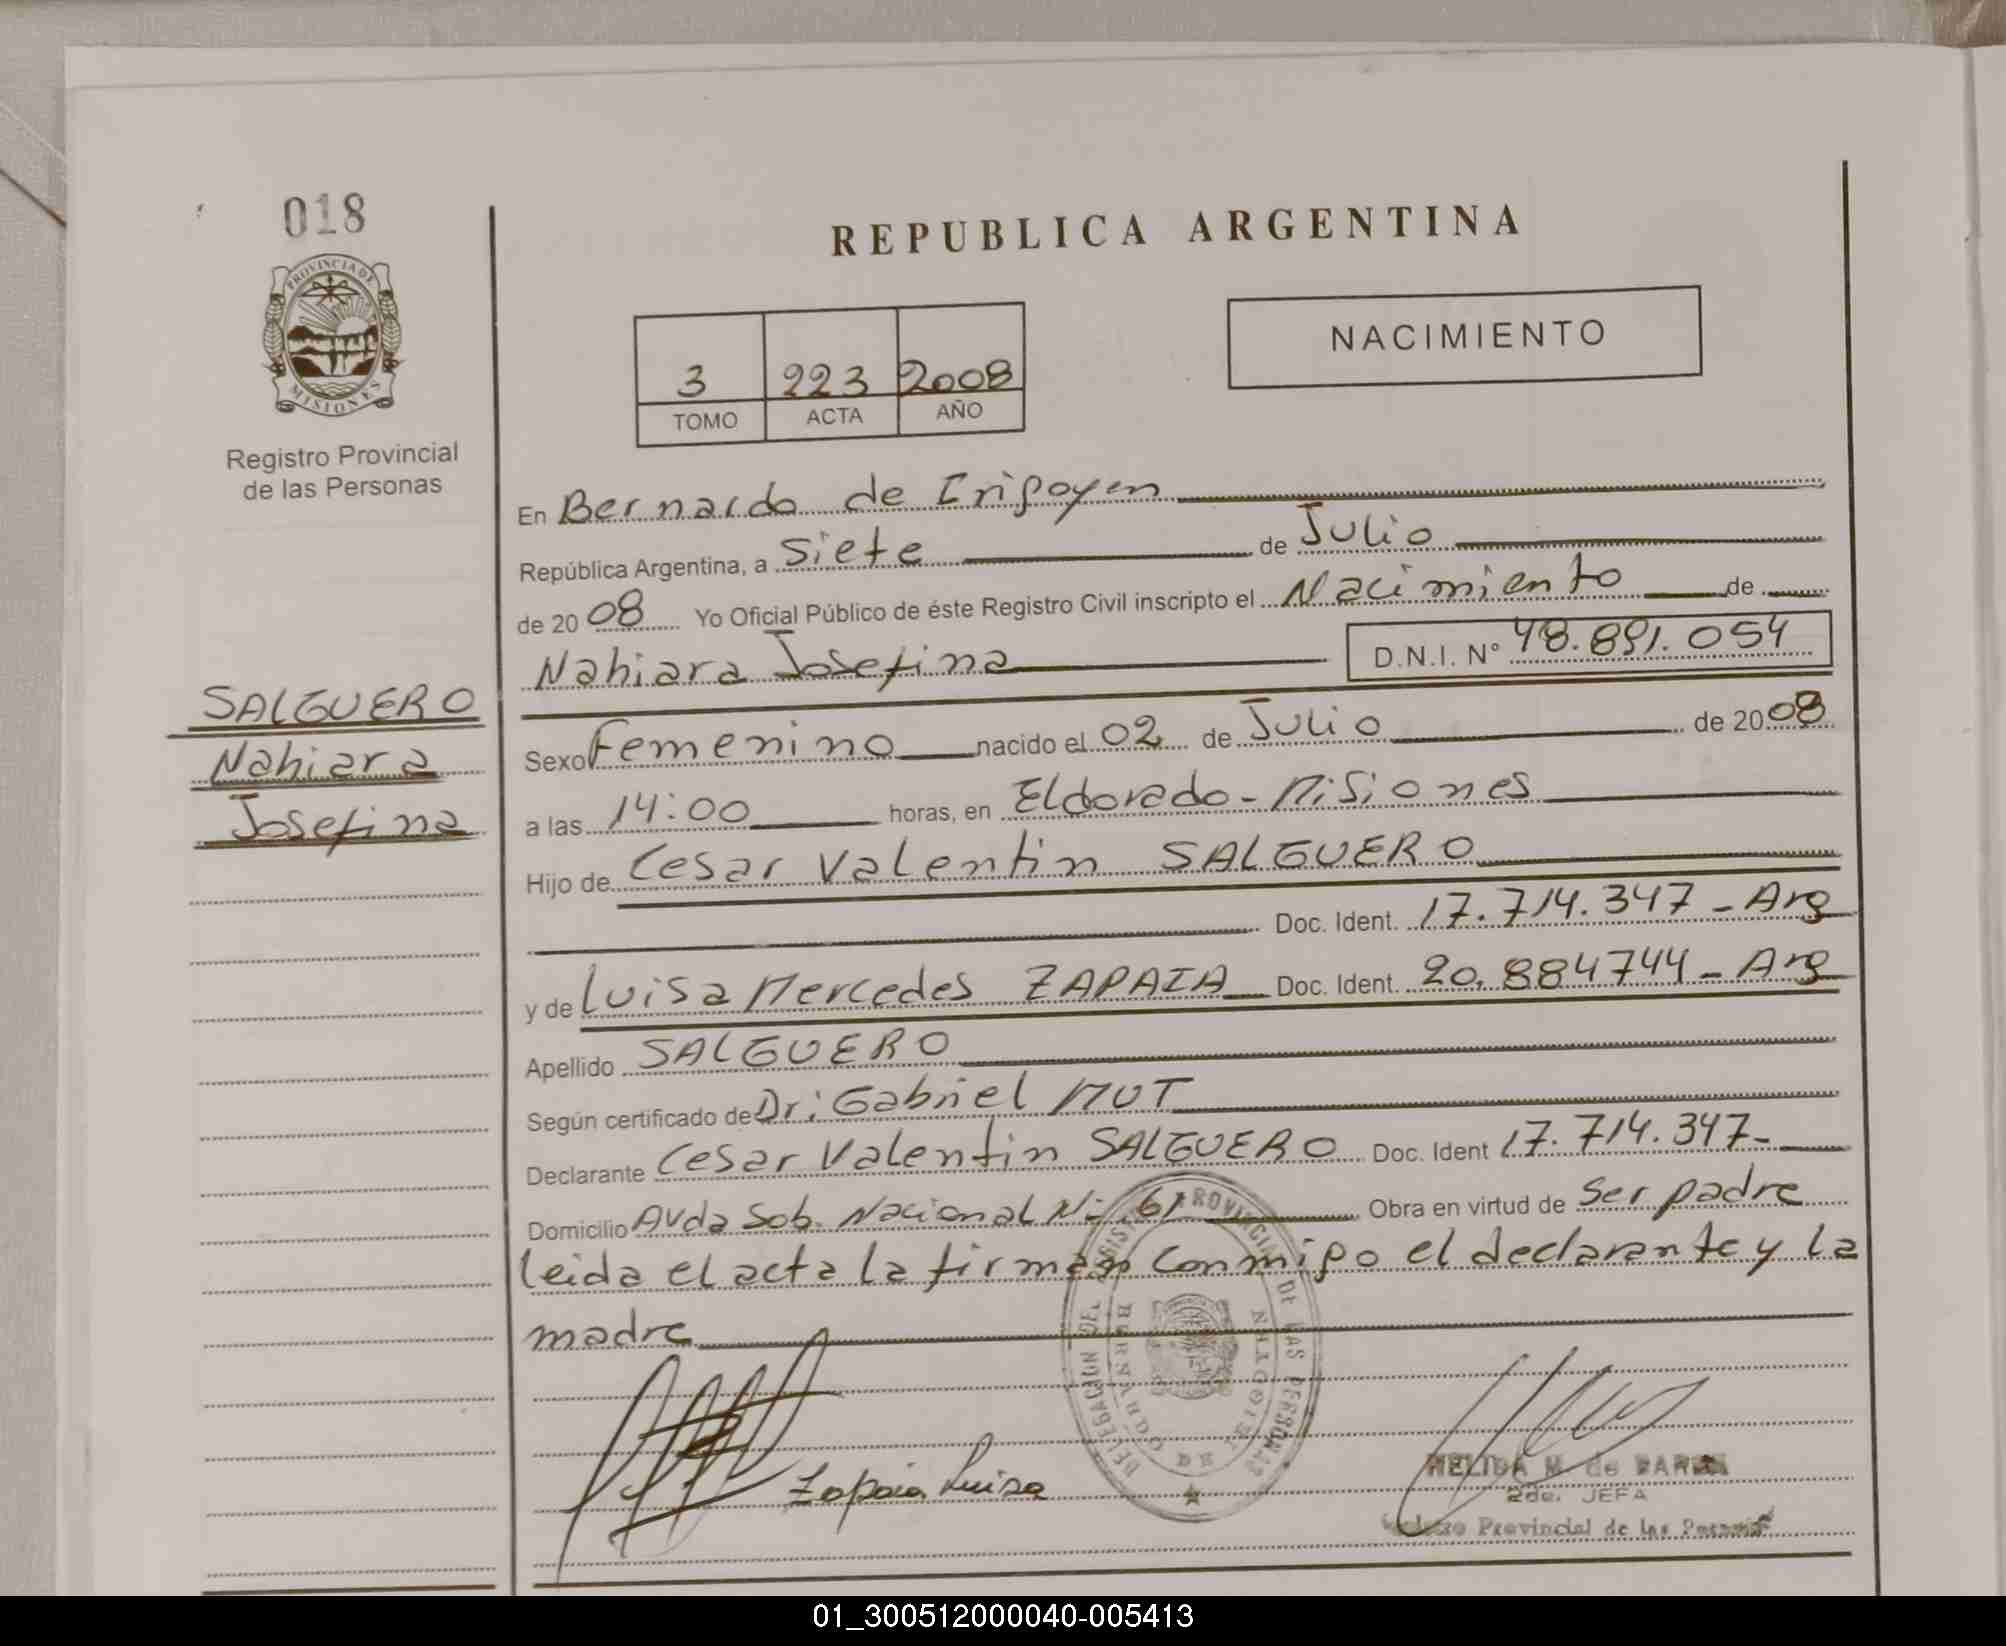 018
PROVINCIA DE
MISIONES
Registro Provincial
de las Personas
SALGUERO
Nahiara
Josefina
REPUBLICA ARGENTINA
3 223 2008
TOMO ACTA AÑO
NACIMIENTO
En Bernardo de Irigoyen
República Argentina, a siete de Julio
de 2008 Yo Oficial Público de éste Registro Civil inscripto el Nacimiento de
Nahiara Josefina D.N.I. Nº 48.891.054
Sexo Femenino nacido el 02 de Julio de 2008
a las 14:00 horas, en Eldorado - Misiones
Hijo de Cesar Valentin SALGUERO
Doc. Ident. 17.714.347 - Arg
y de Luisa Mercedes ZAPAIA Doc. Ident. 20.884744 - Arg
Apellido SALGUERO
Según certificado de Dr: Gabriel MUT
Declarante Cesar Valentin SALGUERO Doc. Ident 17.714.347-
Domicilio Avda Sob. Nacional Nº 61 Obra en virtud de Ser padre
leida el acta la firman conmigo el declarante y la
madre
DELEGACION DEL REGISTRO PROVINCIAL DE LAS PERSONAS
BERNARDO DE IRIGOYEN
Zapaia Luisa
NELIDA M. de
2da. JEFA
Provincial de las
01_300512000040-005413